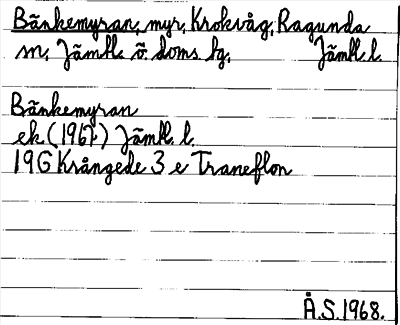 Bänkemyran, myr, Krokvåg, Ragunda
sn, Jämtl. ö. doms. hg, Jämtl l.
Bänkemyran
ek (1967) Jämtl. l.
19G Krångede 3 e Traneflon
Å.S. 1968.